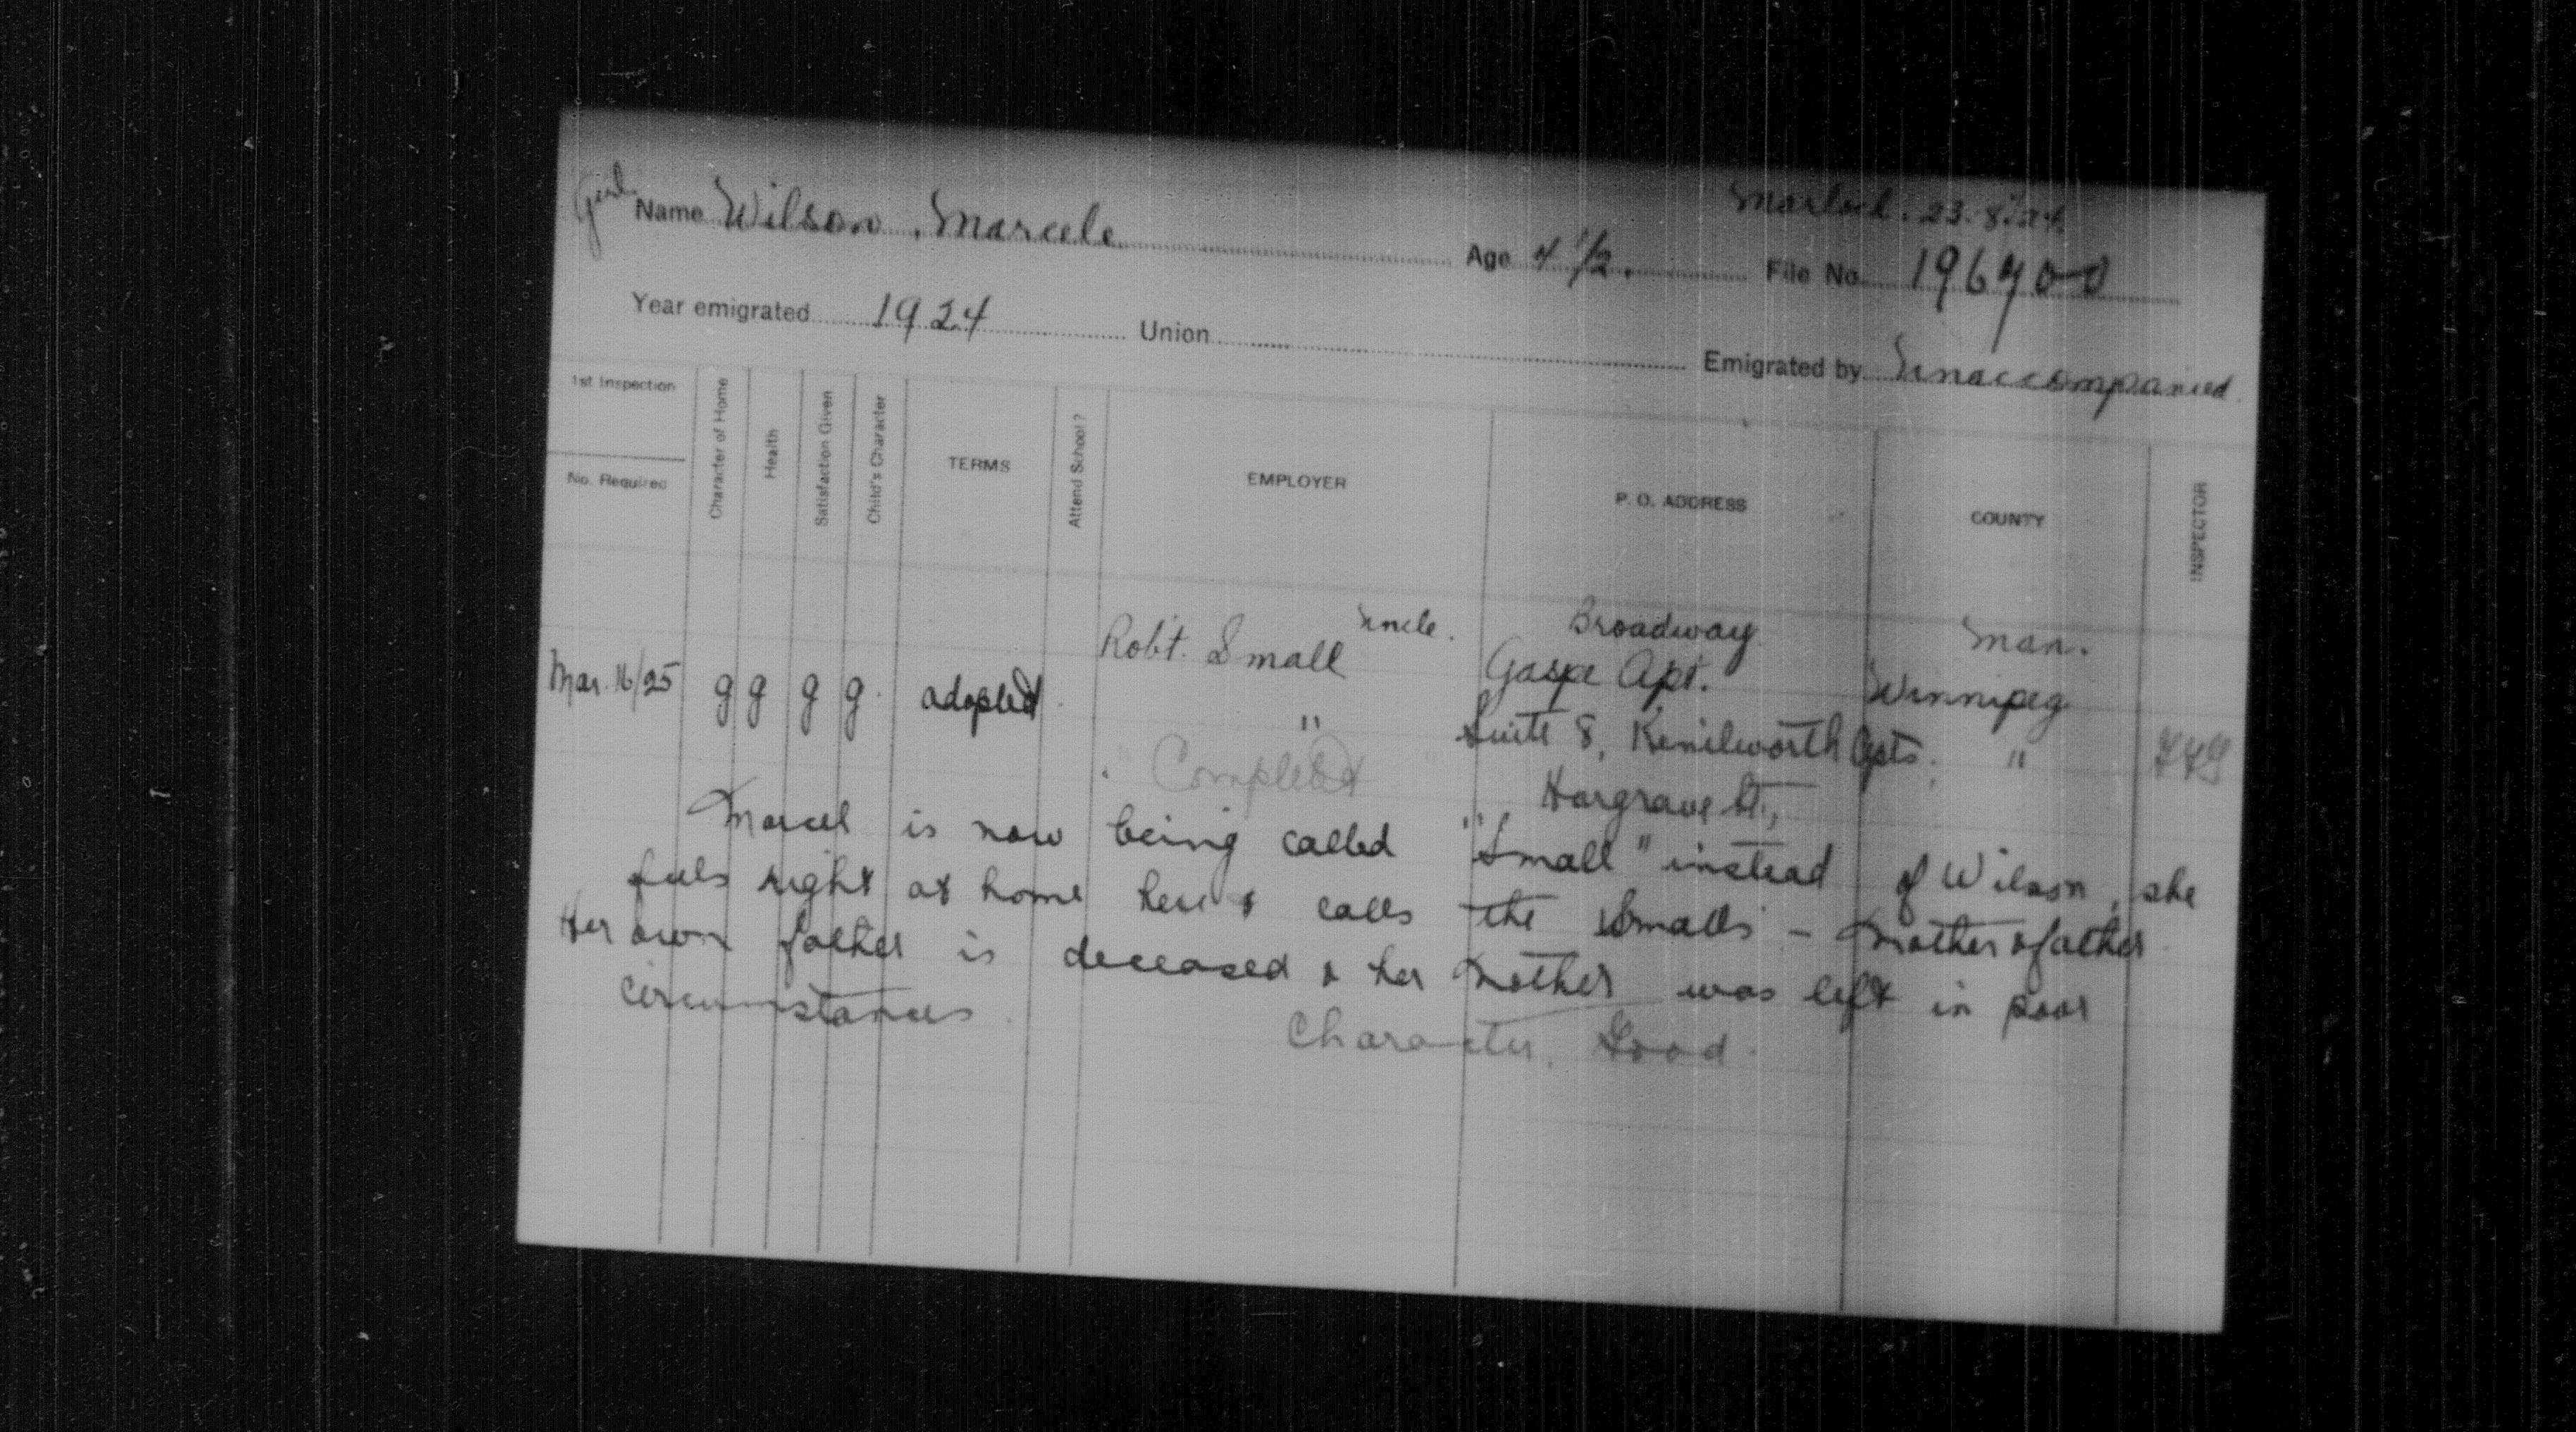 Girl Name Wilson, Marcele Age 4 1/2. File No. 196700
Marloch. 23.8.24.
Year emigrated 1924 Union Emigrated by Unaccompanied
1st Inspection
No. Required
Character of Home
Health
Satisfaction Given
Child's Character
TERMS
Attend School?
EMPLOYER
P. O. ADDRESS
COUNTY
INSPECTOR
Uncle. Broadway Man.
Robt. Small Gaspe Apt. Winnipeg
Mar. 16/25 g g g g. adopted. " Suite 8, Kenilworth Apts, "
Completed " Hargrave St.,
Marcel is now being called "Small" instead of Wilson, she
feels right at home here & calls the Smalls - Mother & father
Her own father is deceased & her mother was left in poor
circumstances.
Character. Good.